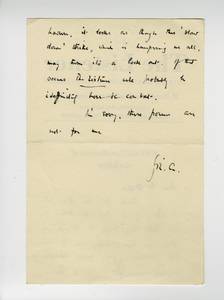 however, it looks as though this 'slow
down' strike, which is hampering us all,
may turn into a lock out. If that
occurs The Listener will probably be
indefinitely
I'm sorry, these poems are
not for me